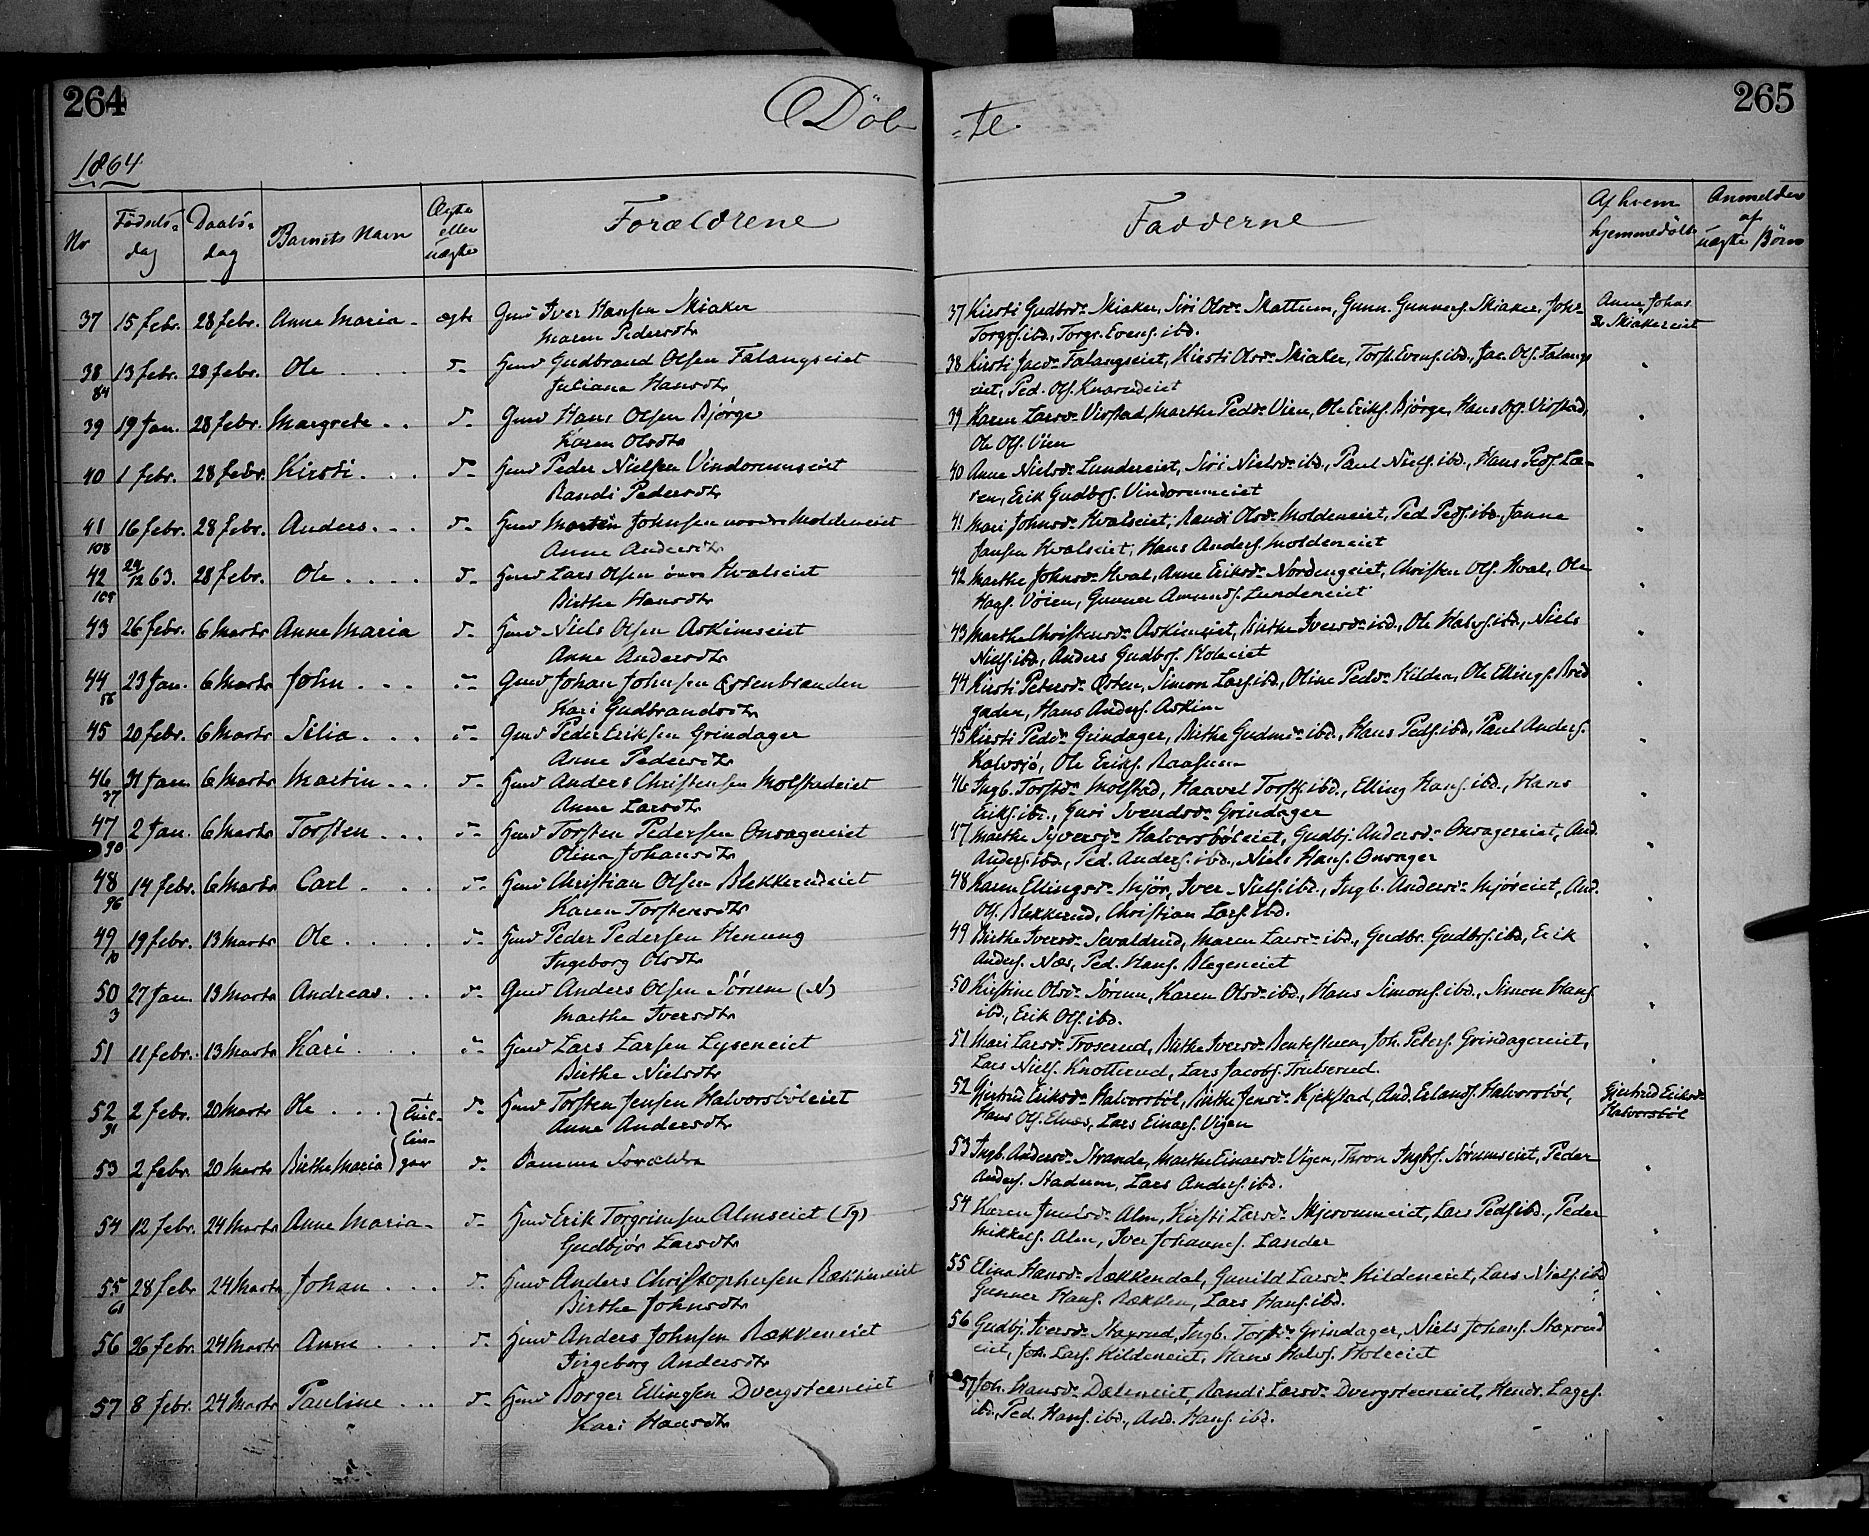 264
Döb
1864
No
Födsels-
dag
Daabs-
dag
Barnets Navn
Ægte
eller
uægte
Forældrene
37 15 febr. 28 febr. Anne Maria - ægte Gmd Iver Hansen Skiaker
Maren Pedersdtr
38 13 febr. 28 febr. Ole . . . . d- Hmd Gudbrand Olsen Falangseiet
84 Juliane Hansdtr
39 19 Jan. 28 febr. Margrete . . d- Gmd Hans Olsen Bjørge
Karen Olsdtr
40 1 febr. 28 febr. Kirsti . . . d- Hmd Peder Nielsen Vindorumseiet
Randi Pedersdtr
41 16 febr. 28 febr. Anders . . . d- Hmd Martin Johnsen nordre Moldeneiet
108 Anne Andersdtr
42 29/12 63. 28 febr. Ole . . . . d- Hmd Lars Olsen Hvalseiet
109 Birthe Hansdtr
43 26 febr. 6 Marts Anne Maria d- Hmd Niels Olsen Askimseiet
Anne Andersdtr
44 23 Jan. 6 Marts John . . . d- Gmd Johan Johnsen Østenbraaden
56 Kari Gudbrandsdtr
45 20 febr. 6 Marts Silia . . . d- Gmd Peder Eriksen Grindager
Anne Pedersdtr
46 31 Jan 6 Marts Martin . . . d- Hmd Anders Christensen Molstadeiet
37 Anne Larsdtr
47 2 Jan. 6 Marts Torsten . . . d- Hmd Torsten Pedersen Onsagereiet
90 Olina Johansdtr
48 14 febr. 6 Marts Carl . . . d- Hmd Christian Olsen Blekkerudeiet
96 Karen Torstensdtr
49 19 febr. 13 Marts Ole . . . . d- Hmd Peder Pedersen Henung
10 Ingeborg Olsdtr
50 27 Jan. 13 Marts Andreas . . . d- Gmd Anders Olsen Sørum (N)
3 Marthe Iversdtr
51 11 febr. 13 Marts Kari . . . d- Hmd Lars Larsen Lyseneiet
Birthe Nielsdtr
52 2 febr. 20 Marts Ole . . . Tvil- d- Hmd Torsten Jensen Halvorsböleiet
91 lin- Anne Andersdtr
53 2 febr. 20 Marts Birthe Maria ger d- Samme Forældre
54 12 febr. 24 Marts Anne Maria - d- Hmd Erik Torgrimsen Almseiet (Tg)
Gudbjør Larsdtr
55 28 febr 24 Marts Johan . . . d- Hmd Anders Christophersen Rækkeneiet
61 Birthe Johnsdtr
56 26 febr. 24 Marts Anne . . . d- Hmd Anders Johnsen Rækkeneiet
Ingeborg Andersdtr
57 8 febr. 24 Marts Pauline . . . d- Hmd Borger Ellingsen Dvergsteeneiet
Kari Hansdtr
265
=te
Fadderne
Af hvem
hjemmedöbt
Anmelder
af
uægte Börn
37 Kirsti Gudbrd- Skiaker, Siri Olsd- Skattum, Gunn. Gunners. Skiaker, Joh- Anne Johns
Torgs. ibd, Torgr. Evens. ibd. Skiakereiet
38 Kirsti Jacd- Falangseiet, Kirsti Olsd- Skiaker, Torst. Evens. ibd., Jac. Ols. Falangs
eiet, Ped. Ols. Knarudeiet
39 Karen Larsd- Virstad, Marthe Pedd- Vien, Ole Eriks. Bjørge, Hans Ols. Virstad,
Ole Ols. Vien
40 Anne Nielsd- Lundereiet, Siri Nielsd- ibd., Paul Niels. ibd., Hans Peds. Læ-
ren, Erik Gudbrs. Vindorumeiet
41 Mari Johnsd- Hvalseiet, Randi Olsd- Moldeneiet, Ped. Peds. ibd, Janne
Jansen Hvalseiet, Hans Anders. Moldeneiet
42 Marthe Johnsd- Hval, Anne Eriksd- Nordengeiet, Christen Ols. Hval, Ole
Haags. Vøien, Gunner Amunds. Lundeneiet
43 Marthe Christensd- Askimeiet, Birthe Iversd- ibd., Ole Halvs. ibd., Niels
Niels. ibd., Anders Gudbrs. Holeeiet
44 Kirsti Petersd- Østen, Simon Lars. ibd, Oline Pedd- Hilden, Ole Ellings. Bred
gaden, Hans Anders. Askim
45 Kirsti Pedd- Grindager, Birthe Gudmd- ibd., Hans Peds. ibd., Paul Anders.
Kalvsjø, Ole Eriks. Raasum
46 Ingb. Torstd- Molstad, Haavel Torsts. ibd., Elling Hans. ibd., Hans
Eriks. ibd., Guri Svendsd- Grindager
47 Marthe Syversd- Halvorsböleiet, Gudbj. Andersd- Onsagereiet, And.
Anders. ibd., Ped. Anders. ibd., Niels Hans. Onsager
48 Karen Ellingsd- Mjør, Iver Niels. ibd., Ingb. Andersd- Mjøreiet, And.
Ols. Blekkerud, Christian Lars. ibd.
49 Birthe Iversd- Sevaldrud, Maren Larsd- ibd., Gudbr. Gudbrs. ibd, Erik
Anders. Næs, Ped. Hans. Blegeneiet
50 Kristine Olsd- Sørum, Karen Olsd- ibd., Hans Simons. ibd., Simon Hans.
ibd., Erik Ols. ibd.
51 Mari Larsd- Troserud, Birthe Iversd- Bentestuen, Joh. Peters. Grindagereiet,
Lars Niels. Knotterud, Lars Jacobs. Trulserud.
52 Gjertrud Eriksd- Halvorsböl, Birthe Jensd- Kjekstad, And. Erlands. Halvorsböl, Gjertrud Eriksd
Hans Ols. Elnæs, Lars Einars. Vigen Halvorsböl
53 Ingb. Andersd- Strande, Marthe Einarsd- Vigen, Thron Ingbrs. Sørumseiet, Peder
Anders. Hadum, Lars Anders. ibd.
54 Karen Juulsd- Alm, Kirsti Larsd- Skjervumeiet, Lars Peds. ibd., Peder
Mikkels. Alm, Iver Johannes. Lander
55 Elina Hansd- Rækkendal, Gunild Larsd- Hildeneiet, Lars Niels. ibd
Gunner Hans. Rækken, Lars Hans. ibd.
56 Gudbj. Iversd- Staxrud, Ingb. Torstd- Grindager, Niels Johans. Staxrud
eiet, Joh. Lars. Hildeneiet, Hans Halvs. Holeeiet
57 Joh. Hansd- Dæleneiet, Randi Larsd- Dvergsteeneiet, Hendr. Lages.
ibd., Ped. Hans. ibd., And. Hans. ibd.